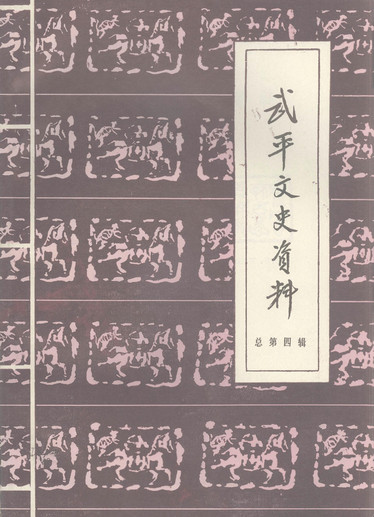 武平文史资料
总第四辑